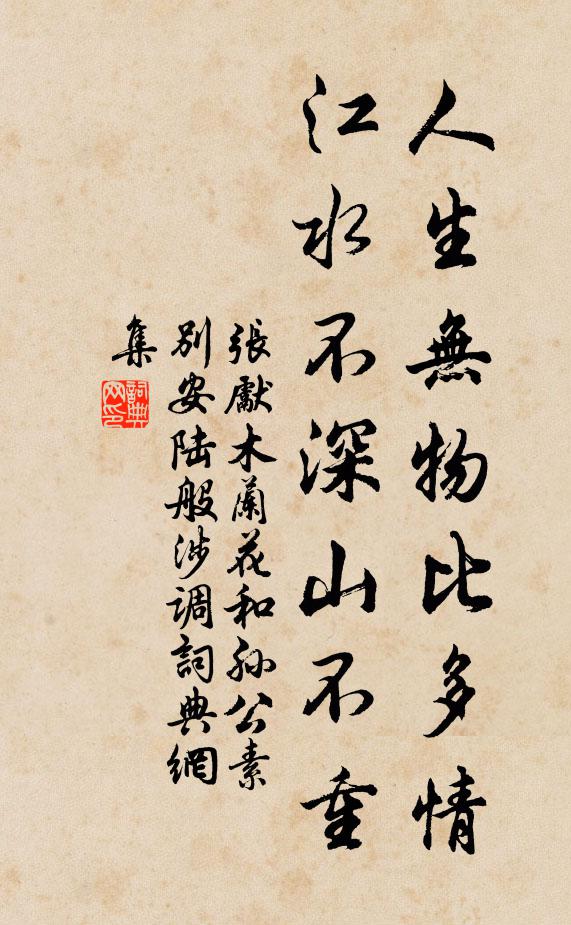 人生無物比多情
江水不深山不重
張獻木蘭花和孙公素
别安陆般涉调詞典網
集
詞典网印